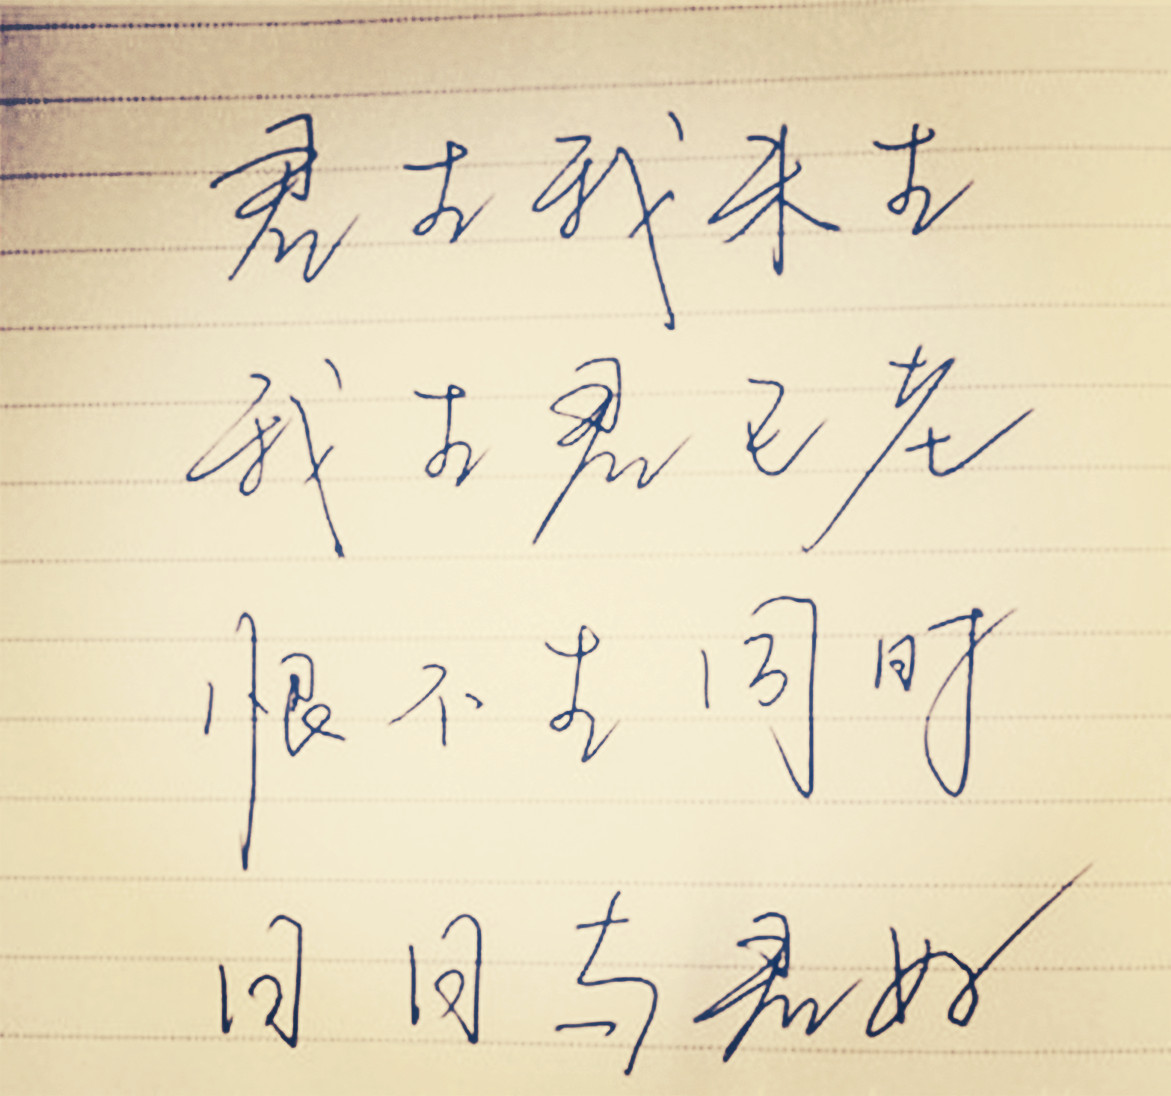 君生我未生
我生君已老
恨不生同时
日日与君好